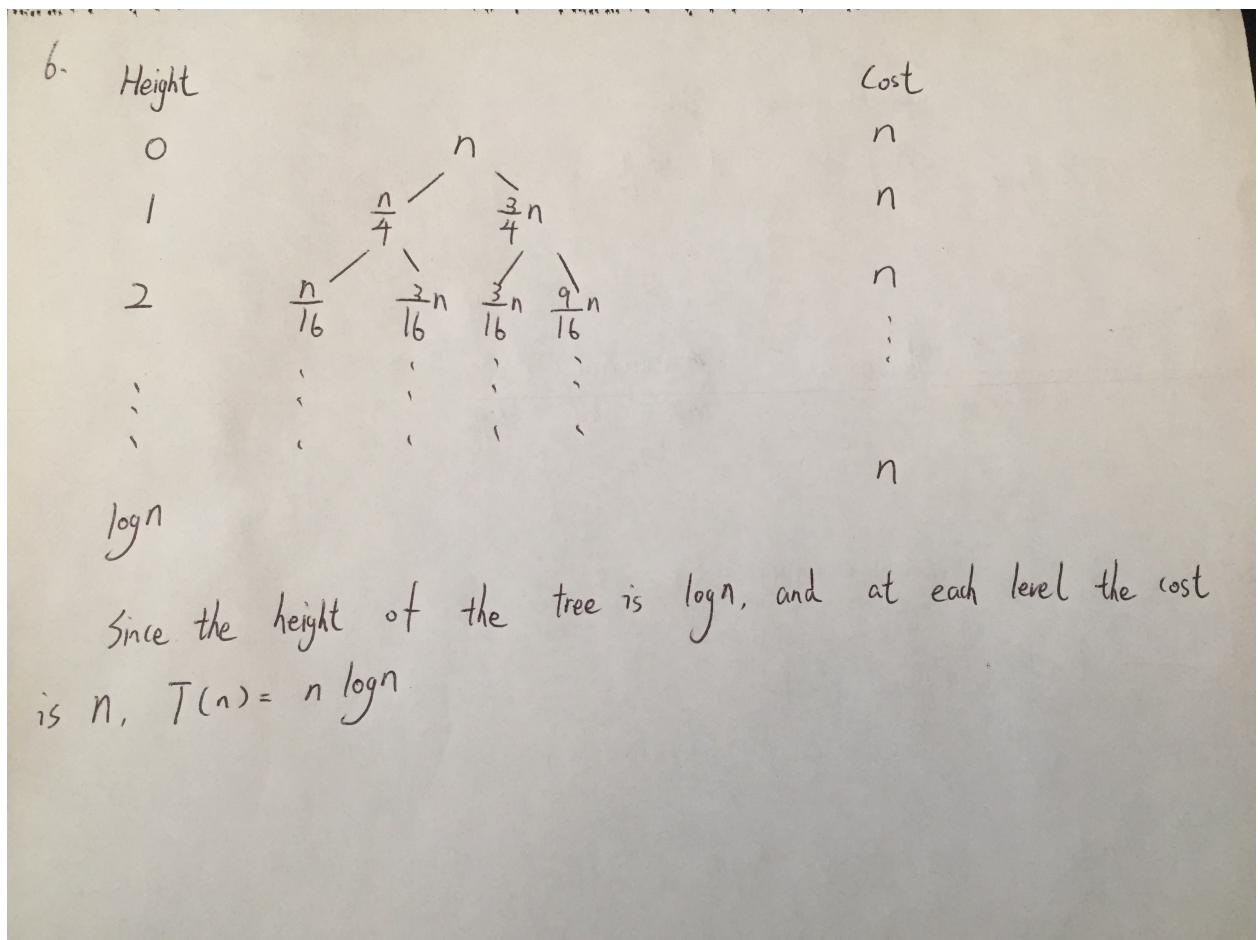 6.
Height Cost
0 n n
1 n/4 3/4 n n
2 n/16 3/16 n 3/16 n 9/16 n n
⋮ ⋮ ⋮ ⋮ ⋮ ⋮
n
logn
Since the height of the tree is logn, and at each level the cost
is n, T(n) = n logn